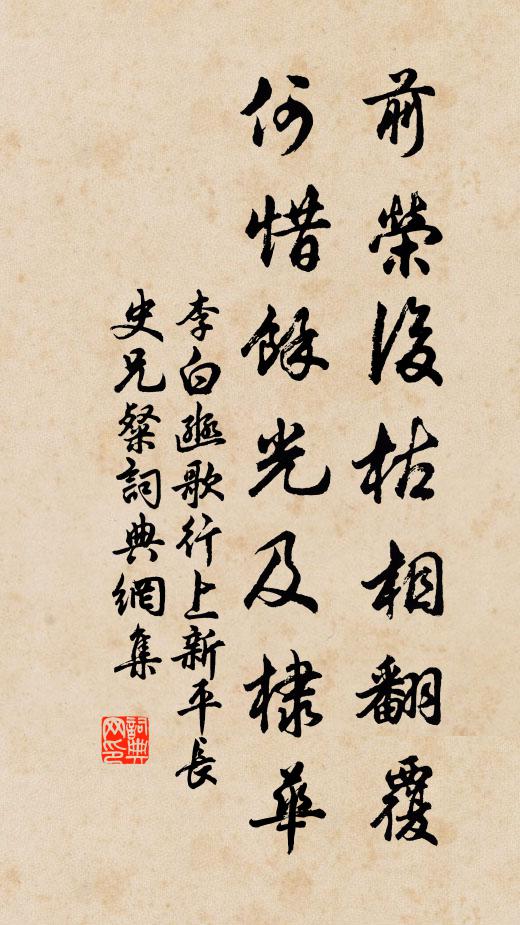 前榮後枯相翻覆
何惜餘光及棣華
李白豳歌行上新平長
史兄粲詞典網集
詞典網印